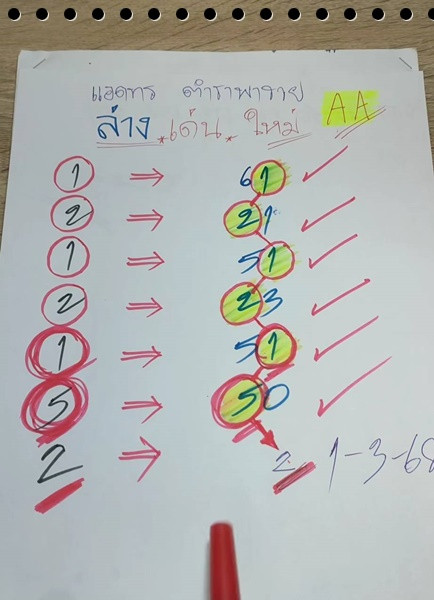 แอดทร ตำราพาจวย AA
ล่าง เด่น ใหม่
1 ⇒ 61 ✓
2 ⇒ 21 ✓
1 ⇒ 51 ✓
2 ⇒ 23 ✓
1 ⇒ 51 ✓
5 ⇒ 50 ✓
2 ⇒ 2 1-3-68